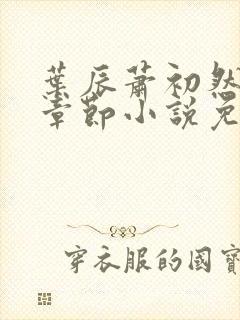 葉辰蕭初然
章節小說免
穿衣服的國寶